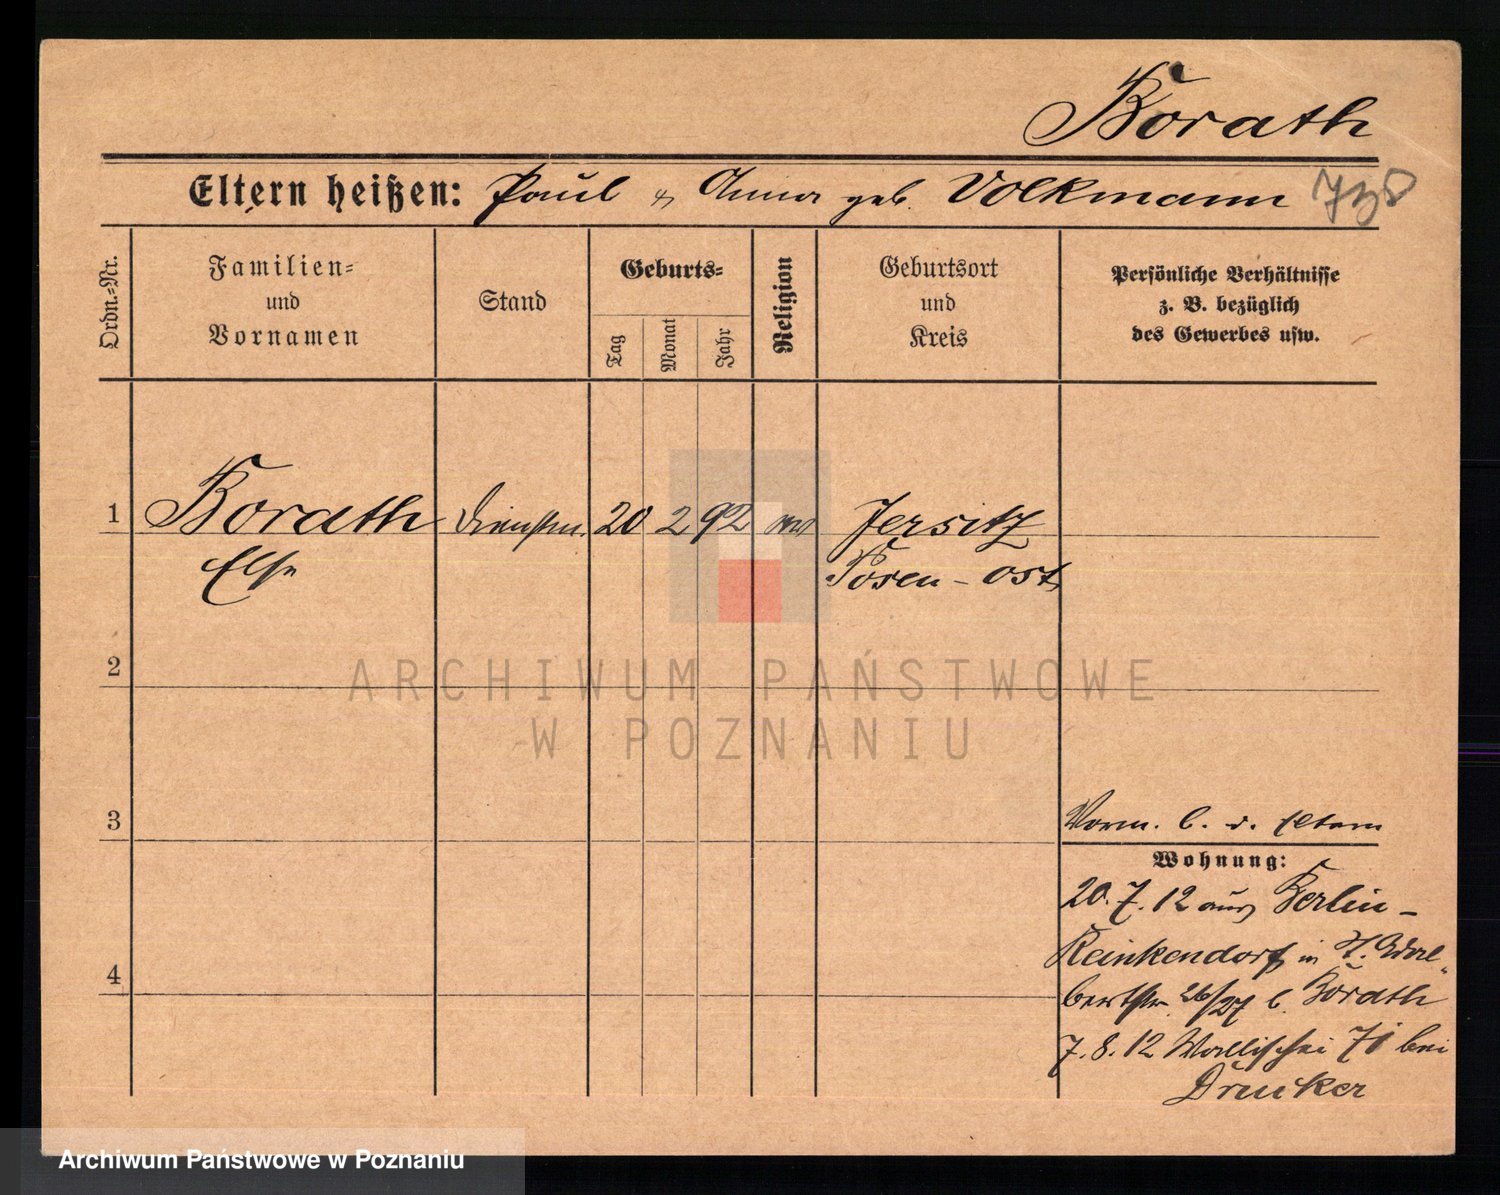 Borath
Eltern heißen: Paul & Anna geb. Volkmann 738
Ordn.-Nr.
Familien-
und
Vornamen
Stand
Geburts-
Tag
Monat
Jahr
Religion
Geburtsort
und
Kreis
Persönliche Verhältnisse
z. B. bezüglich
des Gewerbes usw.
1 Borath Dienstm. 20 2 92 ev Jersitz
Else Posen-Ost
2
ARCHIWUM PAŃSTWOWE
W POZNANIU
3
Vorm. b. d. Eltern
Wohnung:
20.7.12 aus Berlin-
Reinkendorf in H. Adal-
4
bertstr. 26/27 b. Borath
7.8.12 Wallischei 71 bei
Drucker
Archiwum Państwowe w Poznaniu